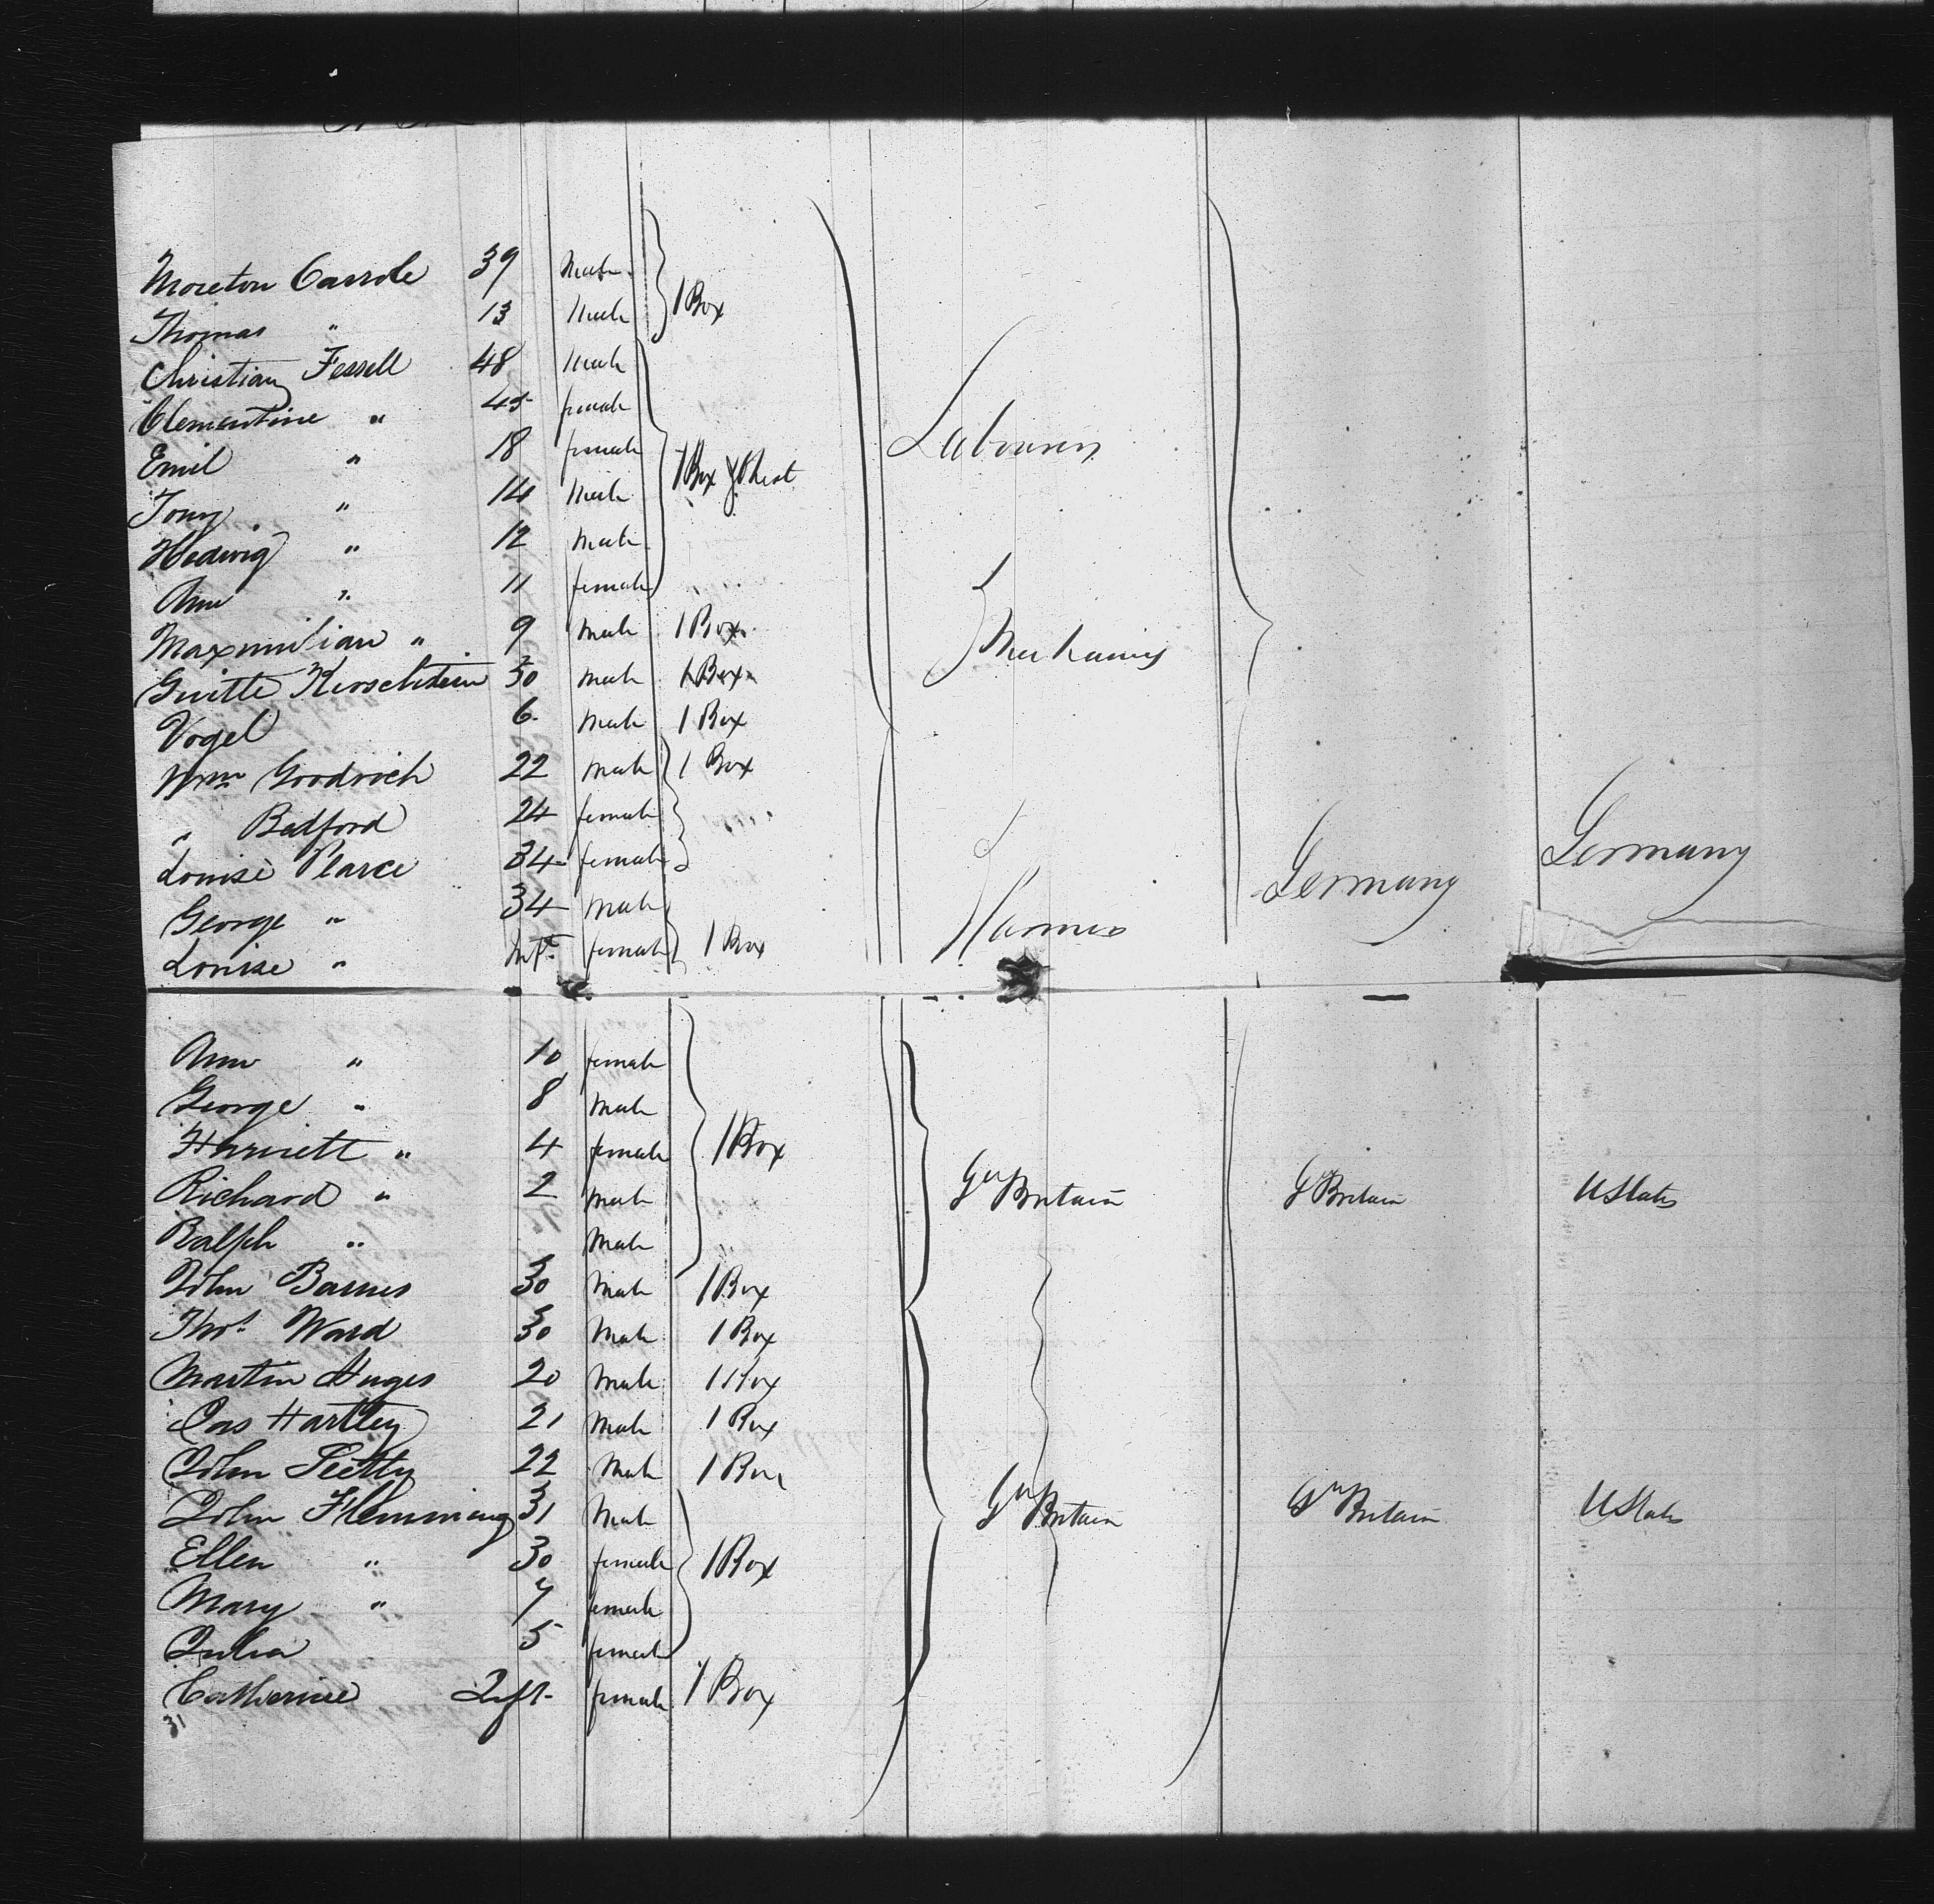 Moreton Carrole 39 Male 1 Box
Thomas " 13 Male
Christian Fessell 48 Male
Clementine " 45 female
Emil " 18 female 1 Box & Chest
Tony " 14 Male
Hedwig " 12 Male
Ann " 11 female
Maxmilian " 9 Male 1 Box
Kerschstein 30 Male 1 Box
Vogel 6 Male 1 Box
Wm Goodrich 22 Male 1 Box
" Bedford 24 female
Louise Pearce 34 female
George " 34 Male
Louise " Inft female 1 Box
Labourers
Mechanics
Farmers
Germany
Germany
Ann " 10 female
George " 8 Male
Harriett " 4 female 1 Box
Richard " 2 Male Gt Britain G Britain U States
Ralph " Male
John Barnes 30 Male 1 Box
Thos Ward 30 Male 1 Box
Martin Huges 20 Male 1 Box
Jas Hartley 21 Male 1 Box
John 22 Male 1 Box
John Flemming 31 Male Gt Britain Gt Britain U States
Ellen " 30 female 1 Box
Mary " 7 female
Julia 5 female
Catherine Inft female 1 Box
31